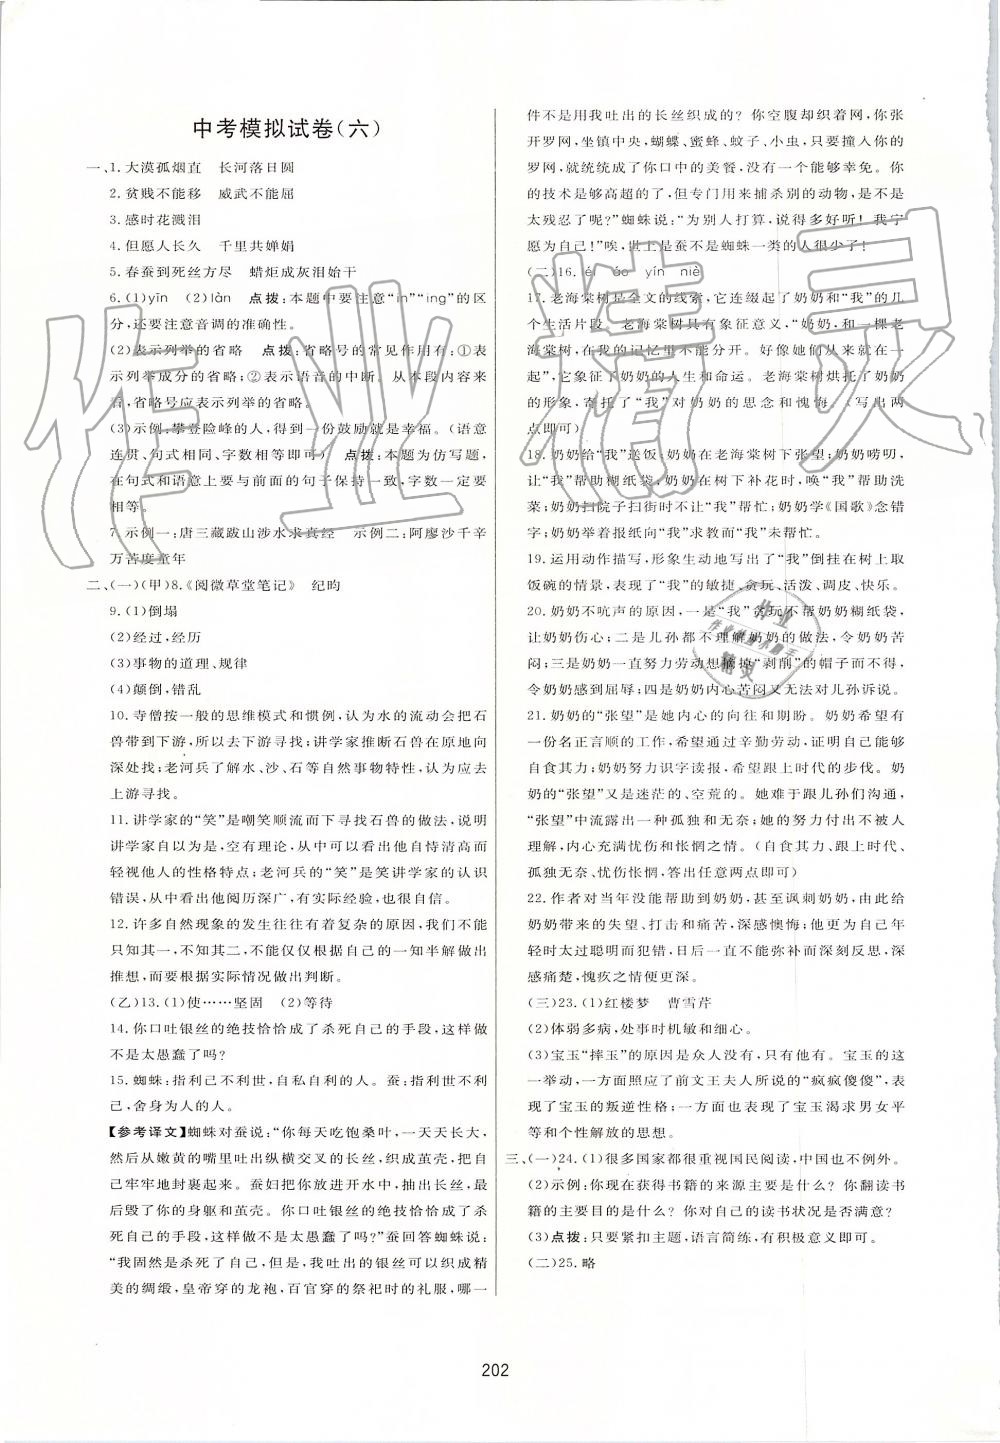 中考模拟试卷(六)
一、1.大漠孤烟直　长河落日圆
2.贫贱不能移　威武不能屈
3.感时花溅泪
4.但愿人长久　千里共婵娟
5.春蚕到死丝方尽　蜡炬成灰泪始干
6.(1)yīn　(2)làn　点拨:本题中要注意“in”“ing”的区
分,还要注意音调的准确性。
(2)表示列举的省略　点拨:省略号的常见作用有:①表
示列举成分的省略;②表示语音的中断。从本段内容来
看,省略号应表示列举的省略。
(3)示例:攀登险峰的人,得到一份鼓励就是幸福。(语意
连贯、句式相同、字数相等即可)　点拨:本题为仿写题,
在句式和语意上要与前面的句子保持一致,字数一定要
相等。
7.示例一:唐三藏跋山涉水求真经　示例二:阿廖沙千辛
万苦度童年
二、(一)(甲)8.《阅微草堂笔记》　纪昀
9.(1)倒塌
(2)经过,经历
(3)事物的道理、规律
(4)颠倒,错乱
10.寺僧按一般的思维模式和惯例,认为水的流动会把石
兽带到下游,所以去下游寻找;讲学家推断石兽在原地向
深处找;老河兵了解水、沙、石等自然事物特性,认为应去
上游寻找。
11.讲学家的“笑”是嘲笑顺流而下寻找石兽的做法,说明
讲学家只是以学者自居,空有理论,从中看出他自恃清高而
轻视他人的性格特点;老河兵的“笑”是笑讲学家的认识
错误,表明他阅历深广,有实际经验,也很自信。
12.许多自然现象的发生往往有着复杂的原因,我们不能
只知其一,不知其二,不能仅仅根据自己的一知半解做出
推想,而要根据实际情况做出判断。
(乙)13.(1)使……坚固　(2)等待
14.你口吐银丝的绝技恰恰成了杀死自己的手段,这样做
不是太愚蠢了吗?
15.蜘蛛:指利己不利世,自私自利的人。蚕:指利世不利
己,舍身为人的人。
【参考译文】蜘蛛对蚕说:“你每天吃饱桑叶,一天天长大,
然后从嫩黄的嘴里吐出纵横交叉的长丝,织成茧壳,把自
己牢牢地封裹起来。蚕妇把你放进开水中,抽出长丝,最
后毁了你的身躯和茧壳。你口吐银丝的绝技恰恰成了杀
死自己的手段,这样做不是太愚蠢了吗?”蚕回答蜘蛛说:
“我固然是杀死了自己,但是,我吐出的银丝可以织成精
美的绸缎,皇帝穿的龙袍,百官穿的祭祀时的礼服,哪一
件不是用我吐出的长丝织成的?你空腹却织着网,你张
开罗网,坐镇中央,蝴蝶、蜜蜂、蚊子、小虫,只要撞入你的
罗网,就统统成了你口中的美餐,没有一个能够幸免。你
的技术是够高超的了,但专门用来捕杀别的动物,是不是
太残忍了呢?”蜘蛛说:“为别人打算,说得多好听!我宁
愿为自己!”唉,世上是蚕不是蜘蛛一类的人很少了!
(二)16.é　áo　yín　niè
17.老海棠树是全文的线索,它连缀起了奶奶和“我”的几
个生活片段。老海棠树具有象征意义,“奶奶,和一棵老
海棠树,在我的记忆里不能分开。好像她们从来就在一
起”,它象征了奶奶的人生和命运。老海棠树烘托了奶奶
的形象,寄托了“我”对奶奶的思念和愧悔。(写出两
点即可)
18.奶奶给“我”送饭;奶奶在老海棠树下张望;奶奶唠叨,
让“我”帮助糊纸袋;奶奶在树下补花时,唤“我”帮助洗
菜;奶奶扫院子扫街时不让“我”帮忙;奶奶学《国歌》念错
字;奶奶举着报纸向“我”求教而“我”未帮忙。
19.运用动作描写,形象生动地写出了“我”倒挂在树上取
饭碗的情景,表现了“我”的敏捷、贪玩、活泼、调皮、快乐。
20.奶奶不吭声的原因,一是“我”贪玩不帮奶奶糊纸袋,
让奶奶伤心;二是儿孙都不理解奶奶的做法,令奶奶苦
闷;三是奶奶一直努力劳动想摘掉“剥削”的帽子而不得,
令奶奶感到屈辱;四是奶奶内心苦闷又无法对儿孙诉说。
21.奶奶的“张望”是她内心的向往和期盼。奶奶希望有
一份名正言顺的工作,希望通过辛勤劳动,证明自己能够
自食其力;奶奶努力识字读报,希望跟上时代的步伐。奶
奶的“张望”又是迷茫的、空荒的。她难于跟儿孙们沟通,
“张望”中流露出一种孤独和无奈;她的努力付出不被人
理解,内心充满无奈和怅惘之情。(自食其力、跟上时代、
孤独无奈、怅惘之情,答出任意两点即可)
22.作者对当年没能帮助到奶奶,甚至讽刺奶奶,从而给
奶奶带来的失望、打击和痛苦,深感懊悔;他更为自己年
轻时太过聪明而犯错,日后一直无能弥补而深刻反思,深
感痛楚,愧疚之情便更深。
(三)23.(1)红楼梦　曹雪芹
(2)体弱多病,处事时机敏和细心。
(3)宝玉“摔玉”的原因是众人没有,只有他有。宝玉的这
一举动,一方面照应了前文王夫人所说的“疯疯傻傻”,表
现了宝玉的叛逆性格;一方面表现了宝玉渴求男女平
等和个性解放的思想。
三、(一)24.(1)很多国家都很重视国民阅读,中国也不例外。
(2)示例:你现在获得书籍的来源主要是什么?你翻读书
籍的主要目的是什么?你对自己的读书状况是否满意?
(3)点拨:只要紧扣主题,语言简练,有积极意义即可。
(二)25.略
202
作业精灵